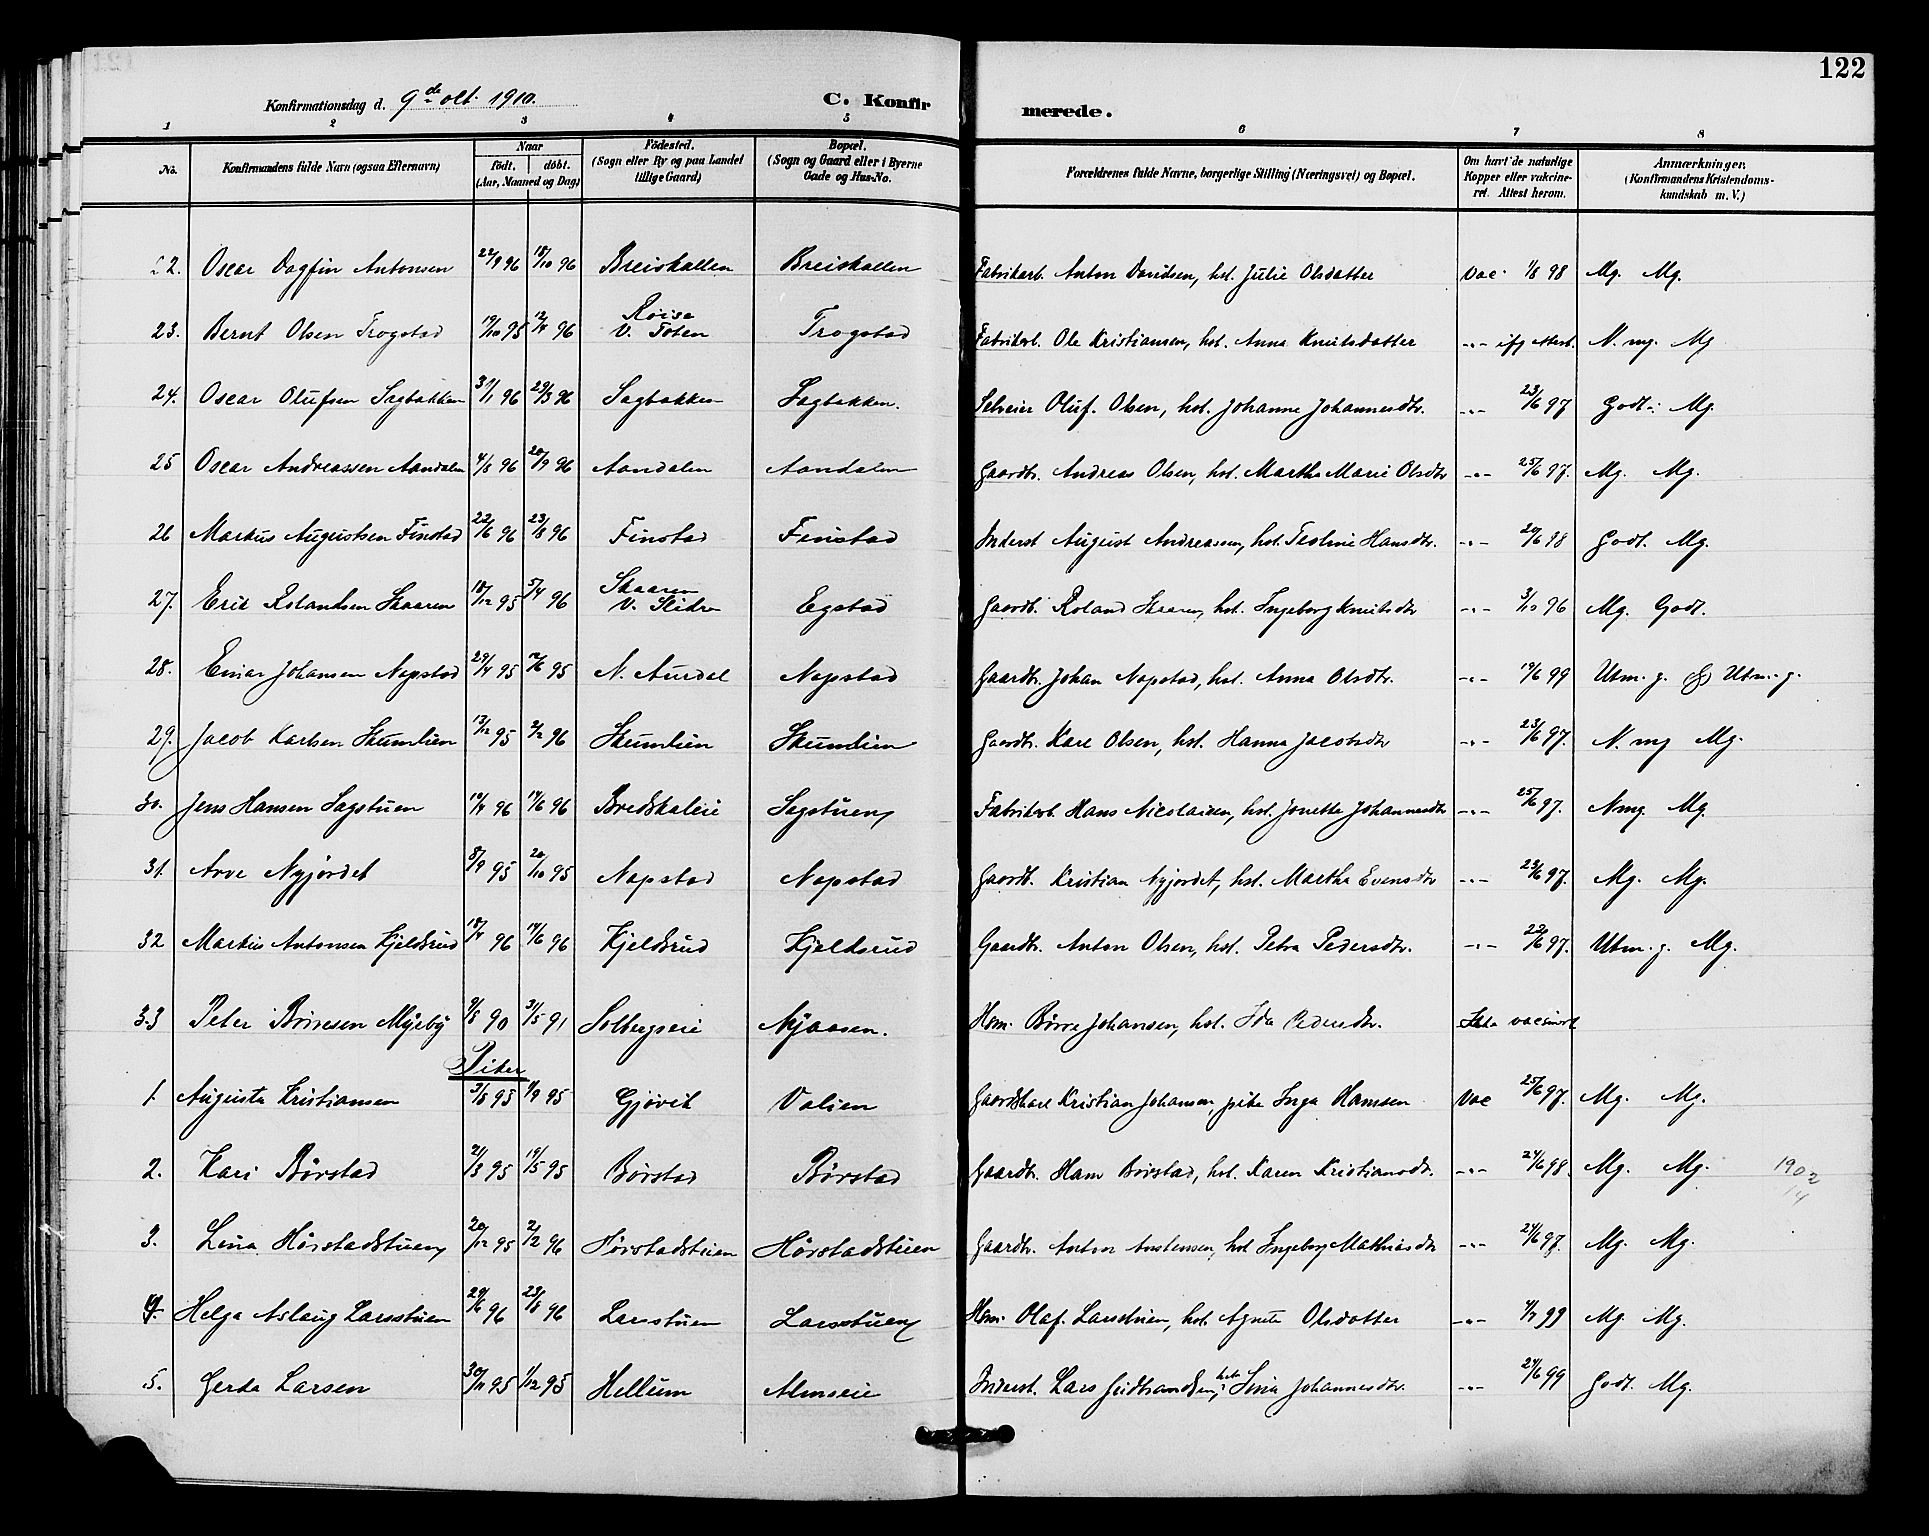 122
Konfirmationsdag d. 9de okt. 1910.
C. Konfirmerede.
1 2 3 4 5 6 7 8
No.
Konfirmandens fulde Navn (ogsaa Efternavn)
Naar
født. døbt.
(Aar, Maaned og Dag)
Fødested.
(Sogn eller By og paa Landet
tillige Gaard)
Bopæl.
(Sogn og Gaard eller i Byerne
Gade og Hus-No.
Forældrenes fulde Navne, borgerlige Stilling (Næringsvei) og Bopæl.
Om havt de naturlige
Kopper eller vakcine-
ret. Attest herom.
Anmærkninger.
(Konfirmandens Kristendoms-
kundskab m. V.)
22. Oscar Dagfin Antonsen 22/9 96 18/10 96 Breiskallen Breiskallen Fabrikarb. Anton Davidsen, hst. Julie Olsdatter Vac. 1/8 98 Mg. Mg.
23. Bernt Olsen Trogstad 19/10 95 12/4 96 Røise V. Toten Trogstad Fabrikarb. Ole Kristiansen, hst. Anna Knutsdatter -"- ifg attest. N. mg. Mg
24. Oscar Olufsen Sagbakken 31/1 96 29/3 96 Sagbakken Sagbakken. Selveier Oluf Olsen, hst. Johanne Johannesdtr. -"- 23/6 97 Godt. Mg.
25 Oscar Andreassen Aandalen 4/8 96 20/9 96 Aandalen Aandalen Gaardbr. Andreas Olsen, hst. Marthe Marie Olsdtr -"- 25/6 97. Mg. Mg.
26 Markus Augustsen Finstad 22/6 96 23/8 96 Finstad Finstad Inderst August Andreasen, hst. Teoline Hansdtr. -"- 20/6 98 Godt. Mg.
27. Erik Rolandsen Skaaren 18/12 95 5/4 96 Skaaren V. Slidre Egstad Gaardb. Roland Skaaren, hst. Ingeborg Knutsdtr -"- 3/10 96 Mg. Godt.
28. Einar Johansen Napstad 29/4 95 12/6 95 N. Aurdal Napstad Gaardbr. Johan Napstad, hst. Anna Olsdtr. -"- 19/6 99 Utm. g. Utm. g.
29. Jacob Karlsen Skumlien 13/12 95 2/2 96 Skumlien Skumlien Gaardbr. Karl Olsen, hst. Hanna Jacobsdtr -"- 23/6 97. N. mg Mg.
30. Jens Hansen Sagstuen 10/4 96 14/6 96 Bredskaleie Sagstuen Fabrikarb. Hans Nicolaisen, hst. Jonette Johannesdtr -"- 25/6 97. N mg. Mg.
31. Arve Nyjordet 8/9 95 20/10 95 Napstad Napstad Gaardb. Kristian Nyjordet, hst. Martha Evensdtr -"- 23/6 97. Mg. Mg.
32 Markus Antonsen Kjeldsrud 18/4 96 14/6 96 Kjeldsrud Kjeldsrud Gaardbr. Anton Olsen, hst. Petra Pedersdtr. -"- 22/6 97. Utm. g. Mg.
33 Peter Børresen Myeby 9/8 90 31/5 91 Solbergseie Nyaasen. Hsm. Børre Johansen, hst. Ida Pedersdtr. Ikke vacsineret
Piker
1. Augusta Kristiansen 3/8 95 1/9 95 Gjøvik Valien Gaardskarl Kristian Johansen, pike Inga Hansen Vac 25/6 97. Mg. Mg.
2. Kari Børstad 21/3 95 19/5 95 Børstad Børstad Gaardbr. Hans Børstad, hst. Karen Kristiansdtr. -"- 24/6 98. Mg. Mg. 1902 14
3. Lina Hørstadstuen 20/12 95 2/2 96 Hørstadstuen Hørstadstuen Gaardbr. Anton Anstensen, hst Ingeborg Mathiasdtr -"- 24/6 97. Mg. Mg.
4. Helga Aslaug Larsstuen 29/6 96 23/8 96 Larsstuen Larsstuen Hsm. Olaf Larsstuen, hst. Agnete Olsdatter -"- 4/7 99 Mg. Mg.
5. Gerda Larsen 30/11 95 1/12 95 Hellum Almseie Inderst. Lars Gudbrandsen, hst. Lina Johannesdtr. -"- 24/6 99 Godt. Mg.